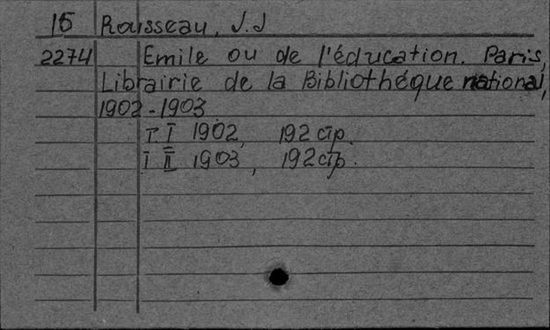 15 Rousseau, J.J
2274 Emile ou de l'éducation. Paris,
Librairie de la Bibliothéque national,
1902-1903
T. I 1902, 192 стр.
T II 1903, 192 стр.